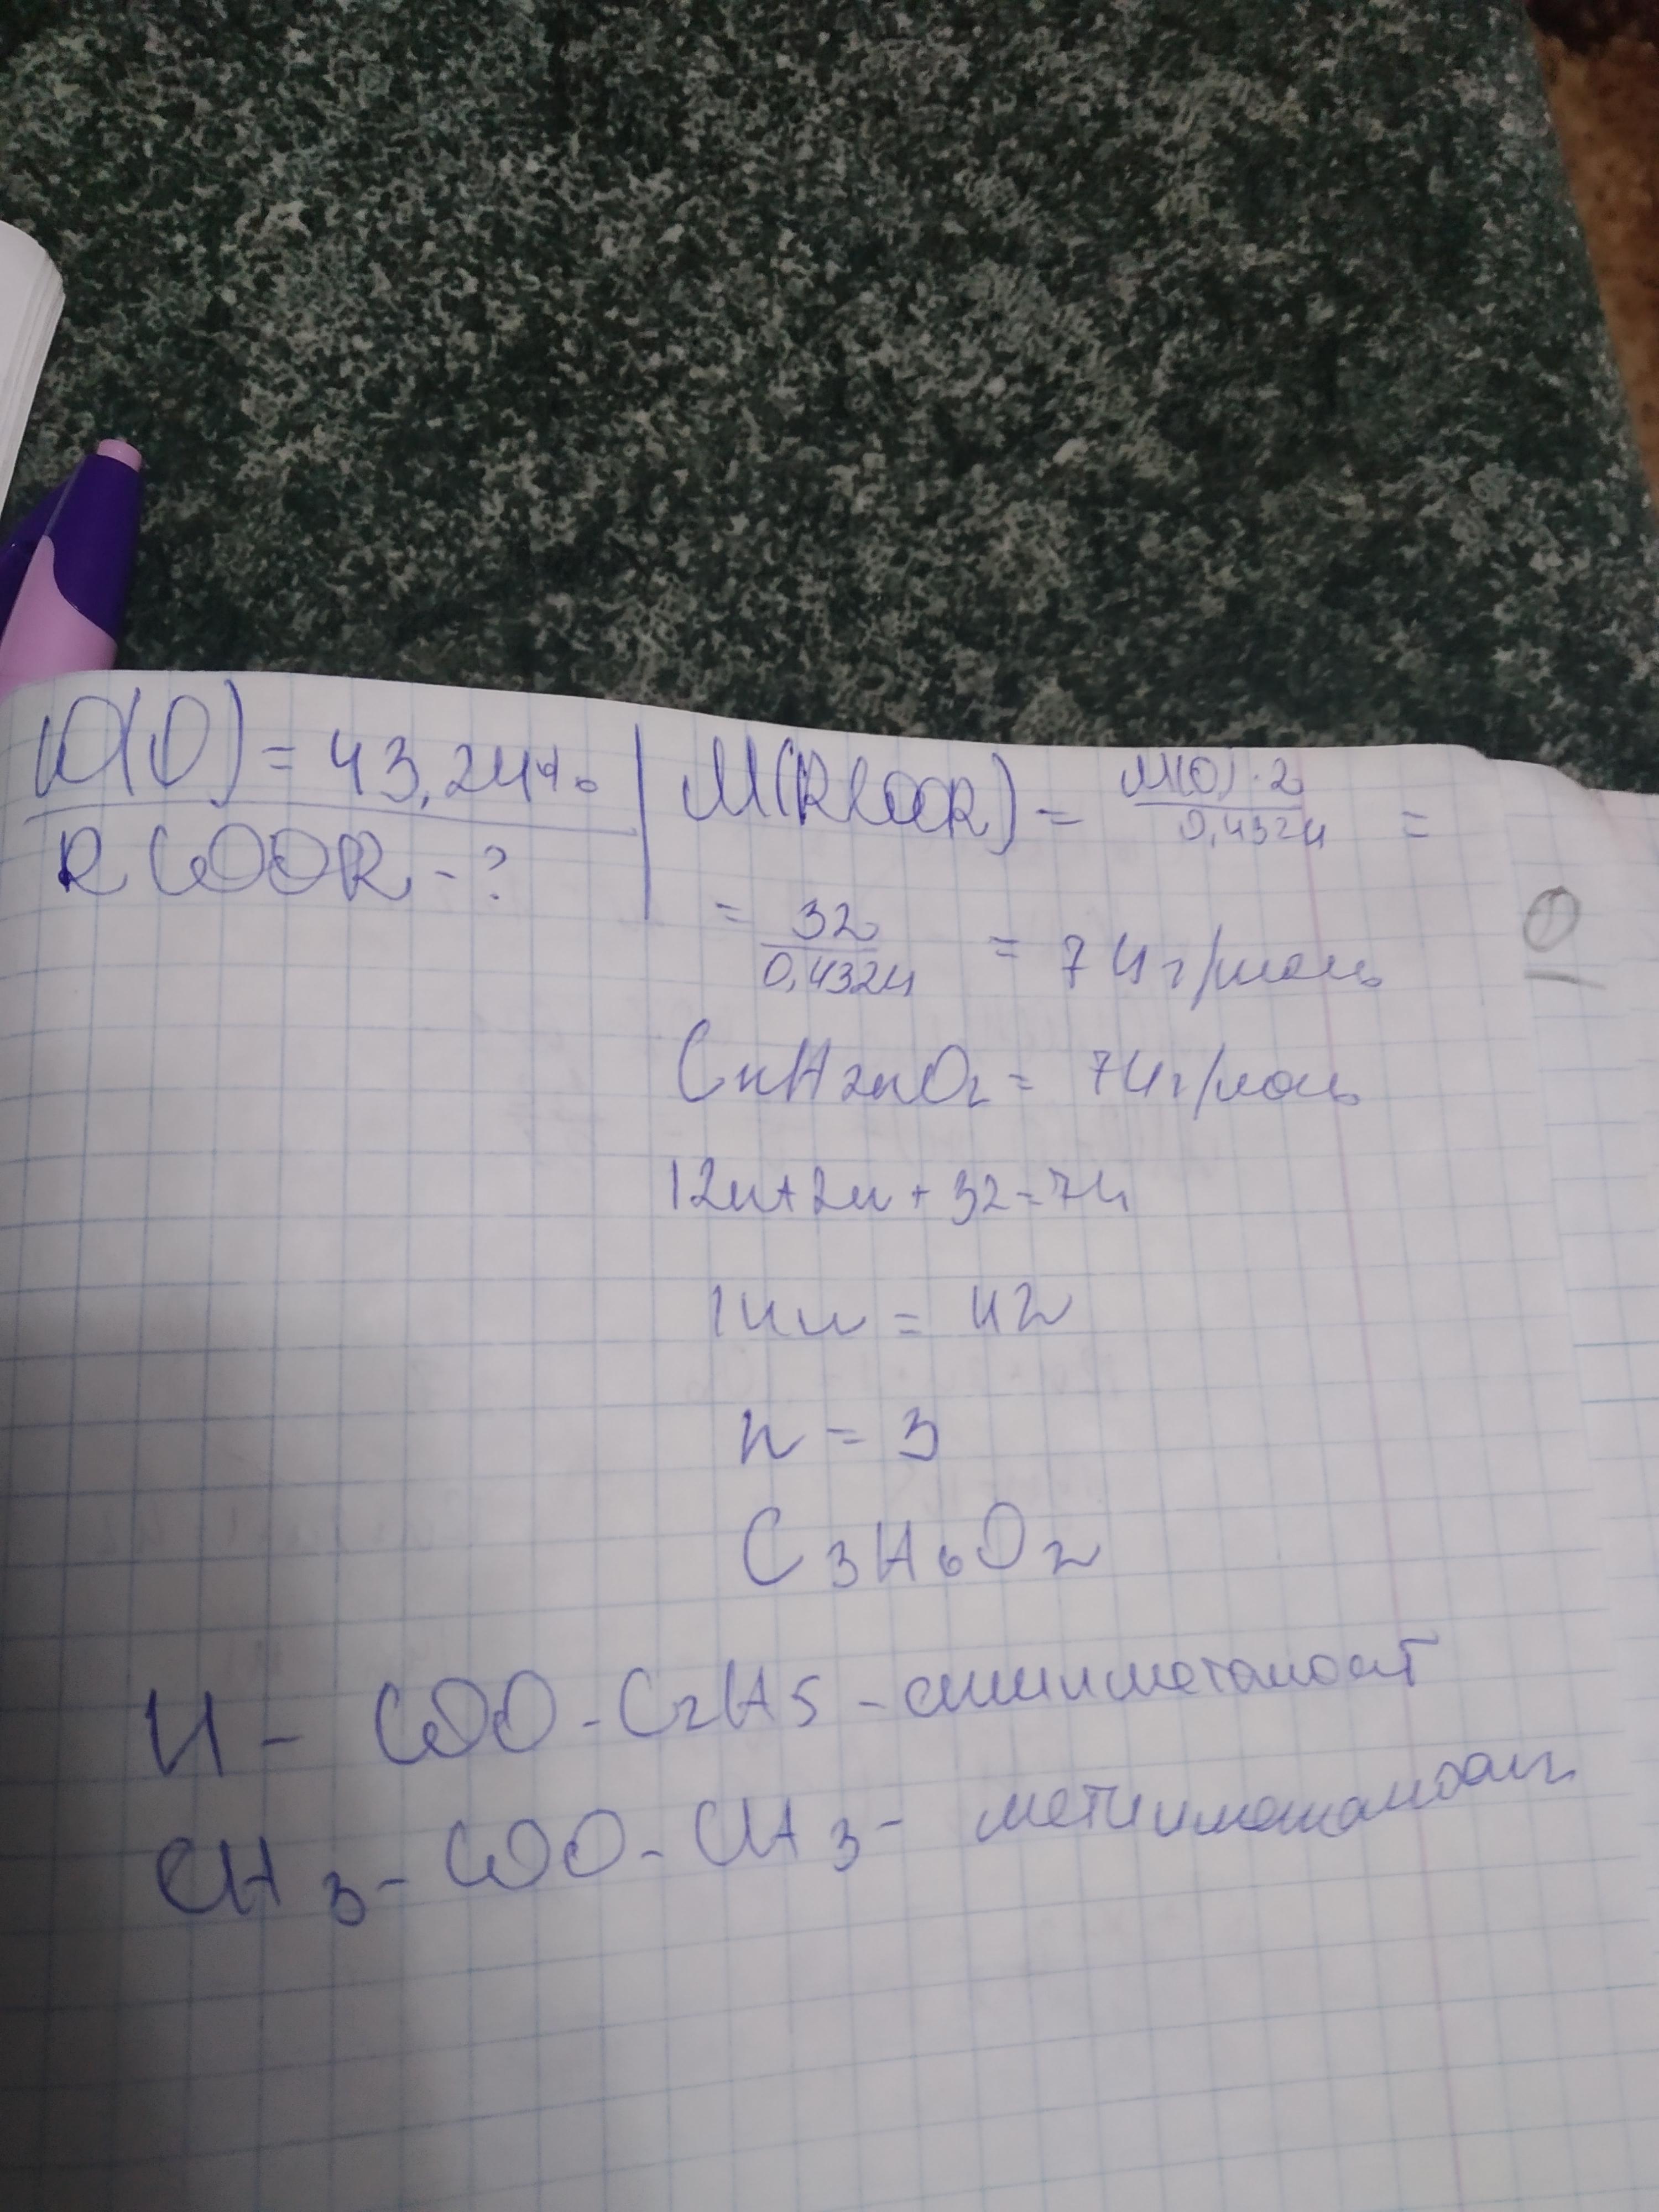 W(O) = 43,24%
RCOOR - ?
M(RCOOR) = M(O)·2 / 0,4324 =
= 32 / 0,4324 = 74 г/моль
CnH2nO2 = 74 г/моль
12n+2n+32=74
14n = 42
n = 3
C3H6O2
H - COO - C2H5 - етилметаноат
CH3 - COO - CH3 -
10